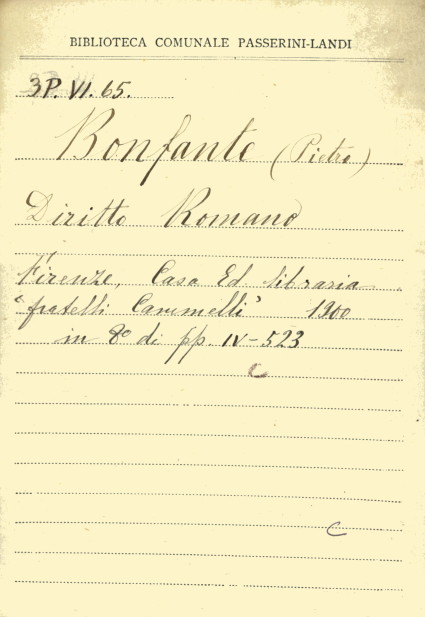 BIBLIOTECA COMUNALE PASSERINI-LANDI
3P. VI. 65.
Bonfante (Pietro)
Diritto Romano
Firenze, Casa Ed. libraria
"fratelli Cammelli" 1900
in 8º di pp. IV-523
C
C